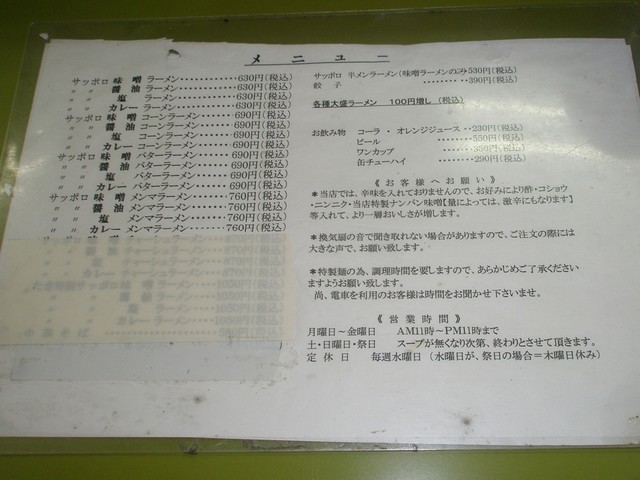 メニュー
サッポロ 味噌 ラーメン・・・・・・・・・・630円(税込)
〃 〃 醤油 ラーメン・・・・・・・・・・630円(税込)
〃 〃 塩 ラーメン・・・・・・・・・・630円(税込)
〃 〃 カレー ラーメン・・・・・・・・・・630円(税込)
サッポロ 味噌 コーンラーメン・・・・・・690円(税込)
〃 〃 醤油 コーンラーメン・・・・・・690円(税込)
〃 〃 塩 コーンラーメン・・・・・・690円(税込)
〃 〃 カレー コーンラーメン・・・・・・690円(税込)
サッポロ 味噌 バターラーメン・・・・・・690円(税込)
〃 〃 醤油 バターラーメン・・・・・・690円(税込)
〃 〃 塩 バターラーメン・・・・・・690円(税込)
〃 〃 カレー バターラーメン・・・・・・690円(税込)
サッポロ 味噌 メンマラーメン・・・・・・760円(税込)
〃 〃 醤油 メンマラーメン・・・・・・760円(税込)
〃 〃 塩 メンマラーメン・・・・・・760円(税込)
〃 〃 カレー メンマラーメン・・・・・・760円(税込)
サッポロ 半メンラーメン(味噌ラーメンのみ)530円(税込)
餃子 ・・・・・・・・390円(税込)
各種大盛ラーメン 100円増し (税込)
お飲み物 コーラ ・ オレンジジュース・・230円(税込)
ビール ・・・・・・・・550円(税込)
ワンカップ ・・・・・・350円(税込)
缶チューハイ ・・・・・・290円(税込)
《 お客様へお願い 》
＊当店では、辛味を入れておりませんので、お好みにより酢・コショウ
・ニンニク・当店特製ナンバン味噌【量によっては、激辛にもなります】
等入れて、より一層おいしさが増します。
＊換気扇の音で聞き取れない場合がありますので、ご注文の際には
大きな声で、お願い致します。
＊特製麺の為、調理時間を要しますので、あらかじめご了承ください
ますようお願い致します。
尚、電車を利用のお客様は時間をお聞かせ下さいませ。
《 営業時間 》
月曜日～金曜日 AM11時～PM11時まで
土・日曜日・祭日 スープが無くなり次第、終わりとさせて頂きます。
定休日 毎週水曜日 (水曜日が、祭日の場合＝木曜日休み)